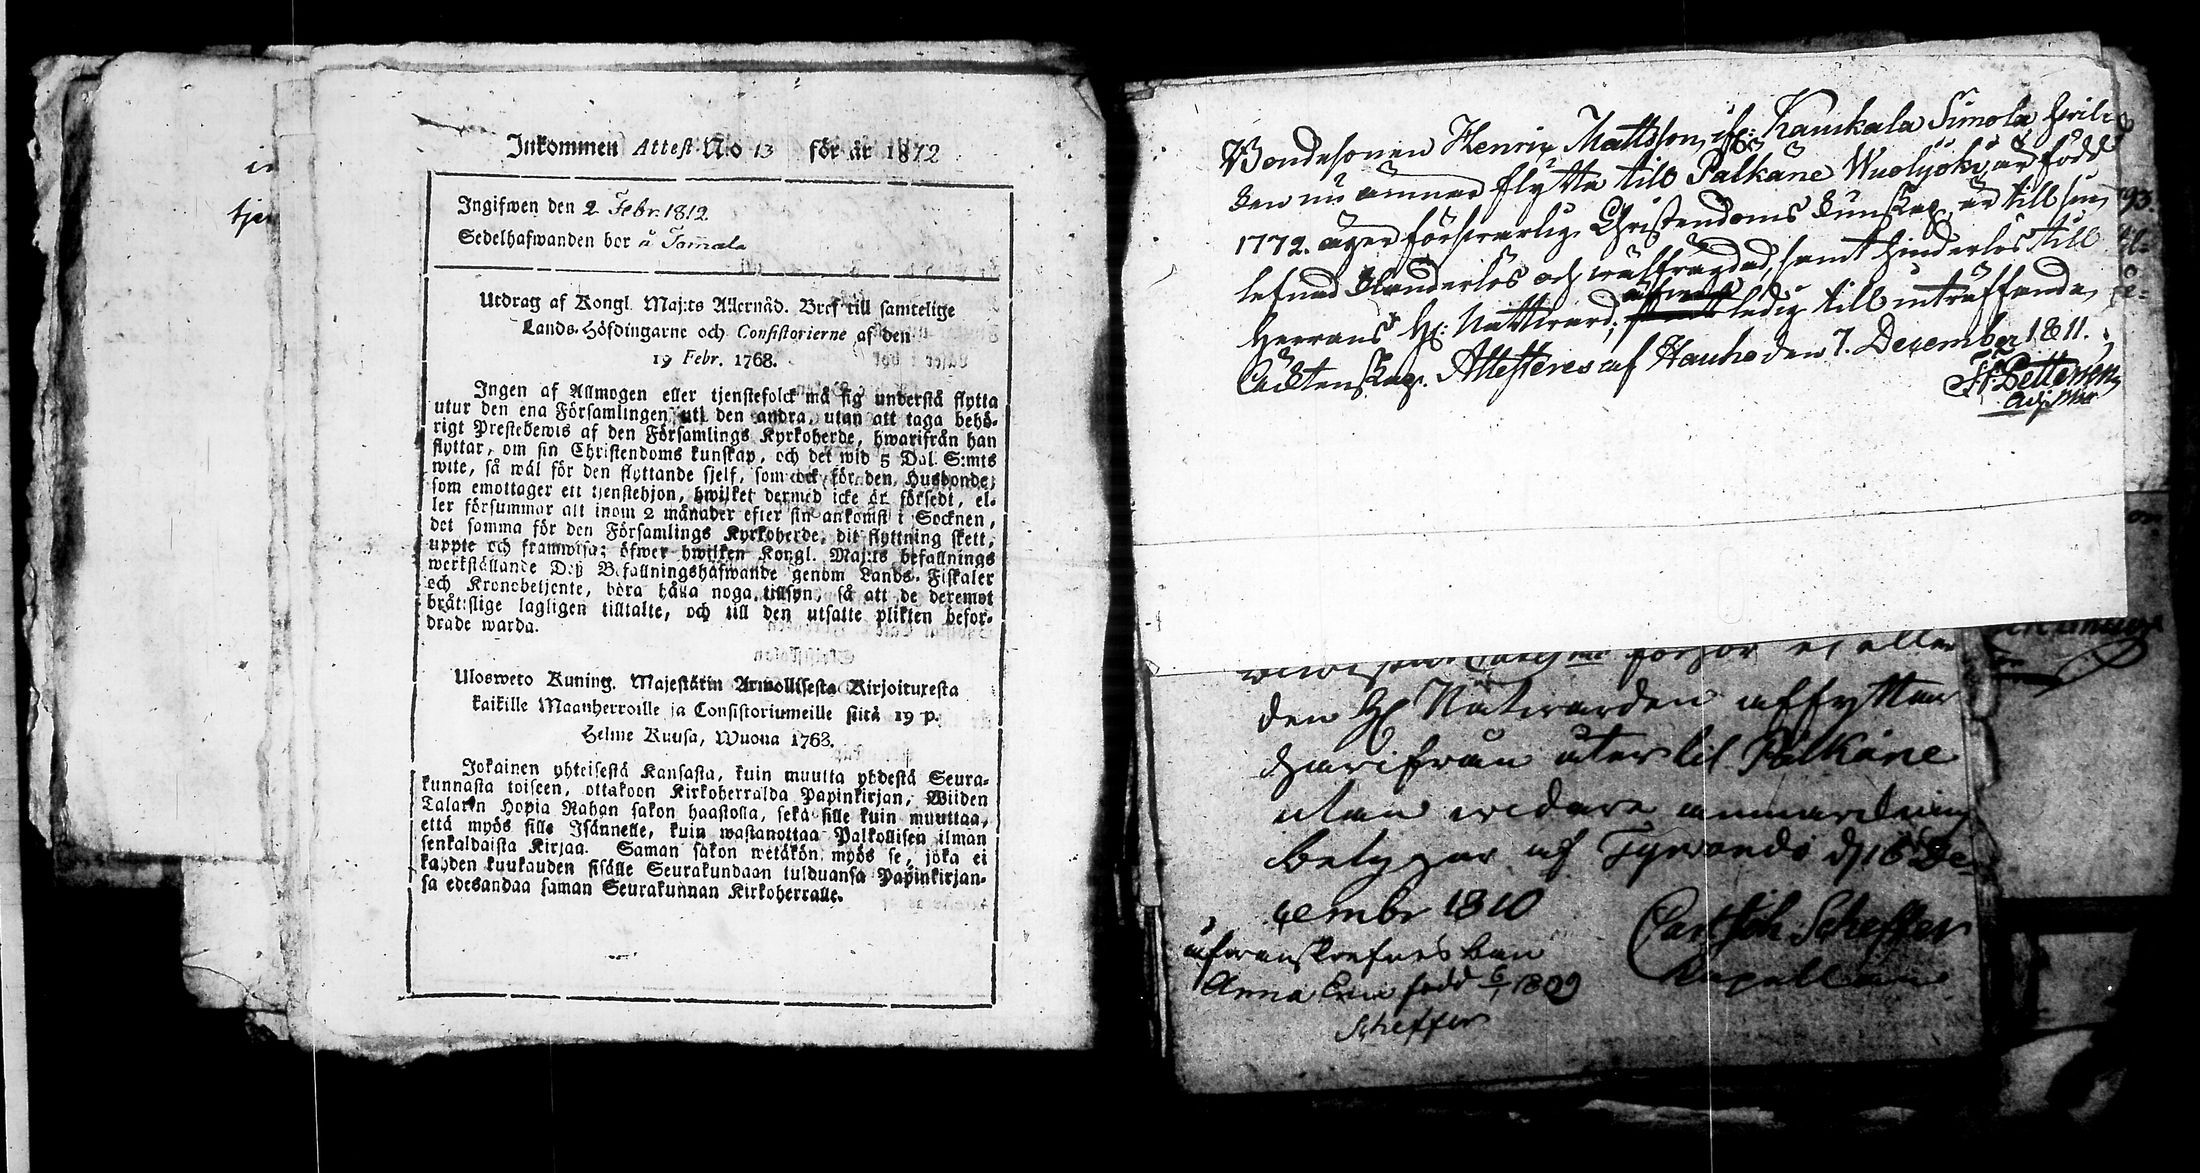 Inkommen Attest No 13 för år 1812
Ingifwen den 2 Febr. 1812
Sedelhafwanden bor å Tommola
Utdrag af Kongl. Maj:ts Allernåd. Bref till samtelige
Lands-Höfdingarne och Consistorierne af den
19 Febr. 1768.
Ingen af Allmogen eller tjenstefolck må sig understå flytta
utur den ena Församlingen uti den andra, utan att taga behö-
rigt Prestebewis af den Församlings Kyrkoherde, hwarifrån han
flyttar, om sin Christendoms kunskap, och det wid 5 Dal. S:mts
wite, så wäl för den flyttande sjelf, som ock för den Husbonde,
som emottager ett tjenstehjon, hwilket dermed icke är försedt, el-
ler försummar att inom 2 månader efter sin ankomst i Socknen,
det samma för den Församlings Kyrkoherde, dit flyttning skett,
uppte och framwisa; öfwer hwilken Kongl. Maj:ts befallnings
werkställande Deß Befallningshafwande genom Lands-Fiskaler
och Kronobetjente, böra hålla noga tillsyn, så att de deremot
bråtslige lagligen tilltalte, och till den utsatte plikten befor-
drade warda.
Ulosweto Kuning. Majestätin Armollisesta Kirjoituresta
kaikille Maanherroille ja Consistoriumeille siitä 19 p.
Helme Kuusa, Wuona 1768.
Jokainen yhteisestä Kansasta, kuin muutta yhdestä Seura-
kunnasta toiseen, ottakoon Kirkoherralda Papinkirjan, Wiiden
Talarin Hopia Rahan sakon haastolla, sekä sille kuin muuttaa,
että myös sille Isännelle, kuin wastanottaa Palkollisen ilman
senkaldaista Kirjaa. Saman sakon wetäkön myös se, joka ei
kahden kuukauden sisälle Seurakundaan tulduansa Papinkirjan-
sa edesandaa saman Seurakunnan Kirkoherralle.
Bondesonen Henric Mattsson ifr: Kaukala Simola hvil-
ken nu ämnar flytta till Palkäne Wuolijoki, är född
1772. äger försvarlig Christendoms kunskap, är till sin
lefnad klanderlös och wälfrägdad, samt hinderlös till
Herrans H: Nattvard; ledig till inträffande
Ächtenskap. Attesteres af Hauho den 7. December 1811.
Pettersson
Adj. Min
den H. Natwarden afflyttar
härifrån åter til Pälkäne
utan widare anmärkning
betygar af Tyrwändö d. 16 De-
cember 1810
Carl Joh. Scheffer
Kapellan
ofwanskrefnes barn
Anna Caisa född 6/1 1809
Scheffer